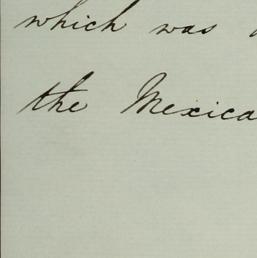 which was
the Mexica